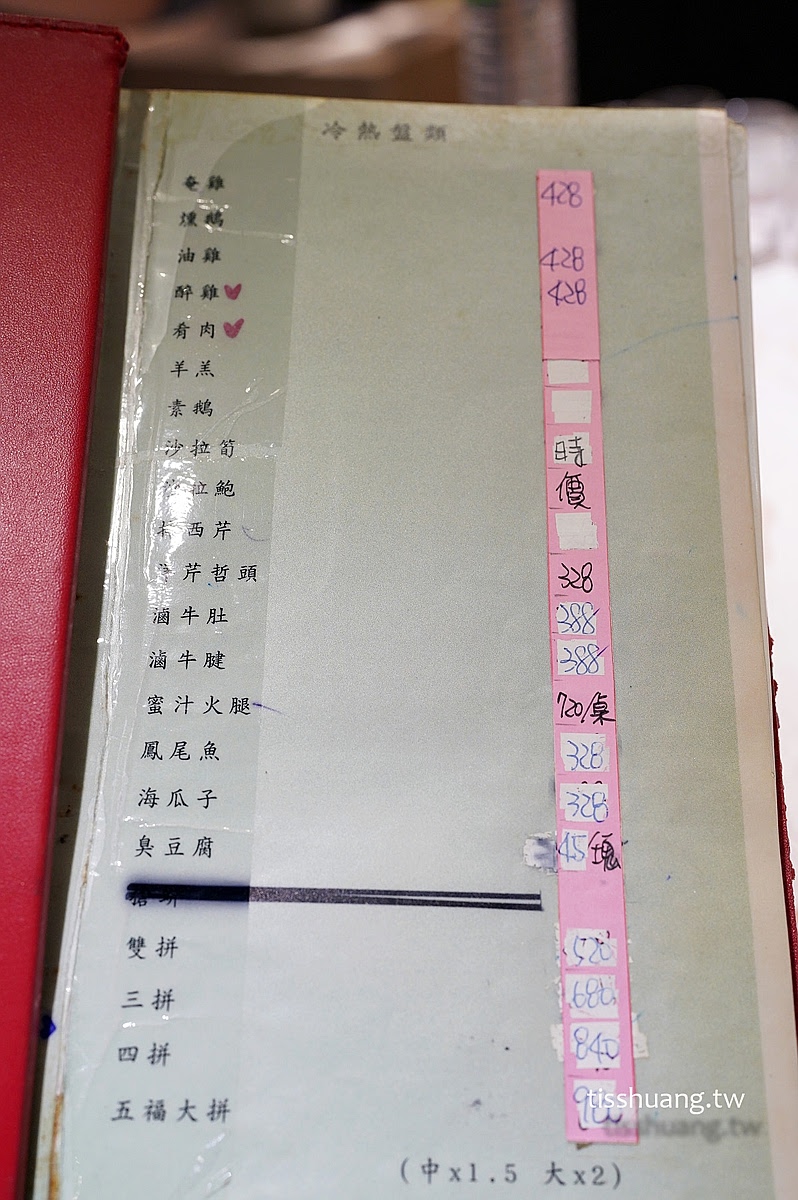 冷熱盤類
奄雞 428
燻鵝
油雞 428
醉雞 428
肴肉
羊羔
素鵝
沙拉筍 時
拉鮑 價
西芹
芹哲頭 328
滷牛肚 388
滷牛腱 388
蜜汁火腿 720/桌
鳳尾魚 328
海瓜子 328
臭豆腐 45/塊
雙拼 520
三拼 680
四拼 840
五福大拼
(中x1.5 大x2)
tisshuang.tw
tisshuang.tw